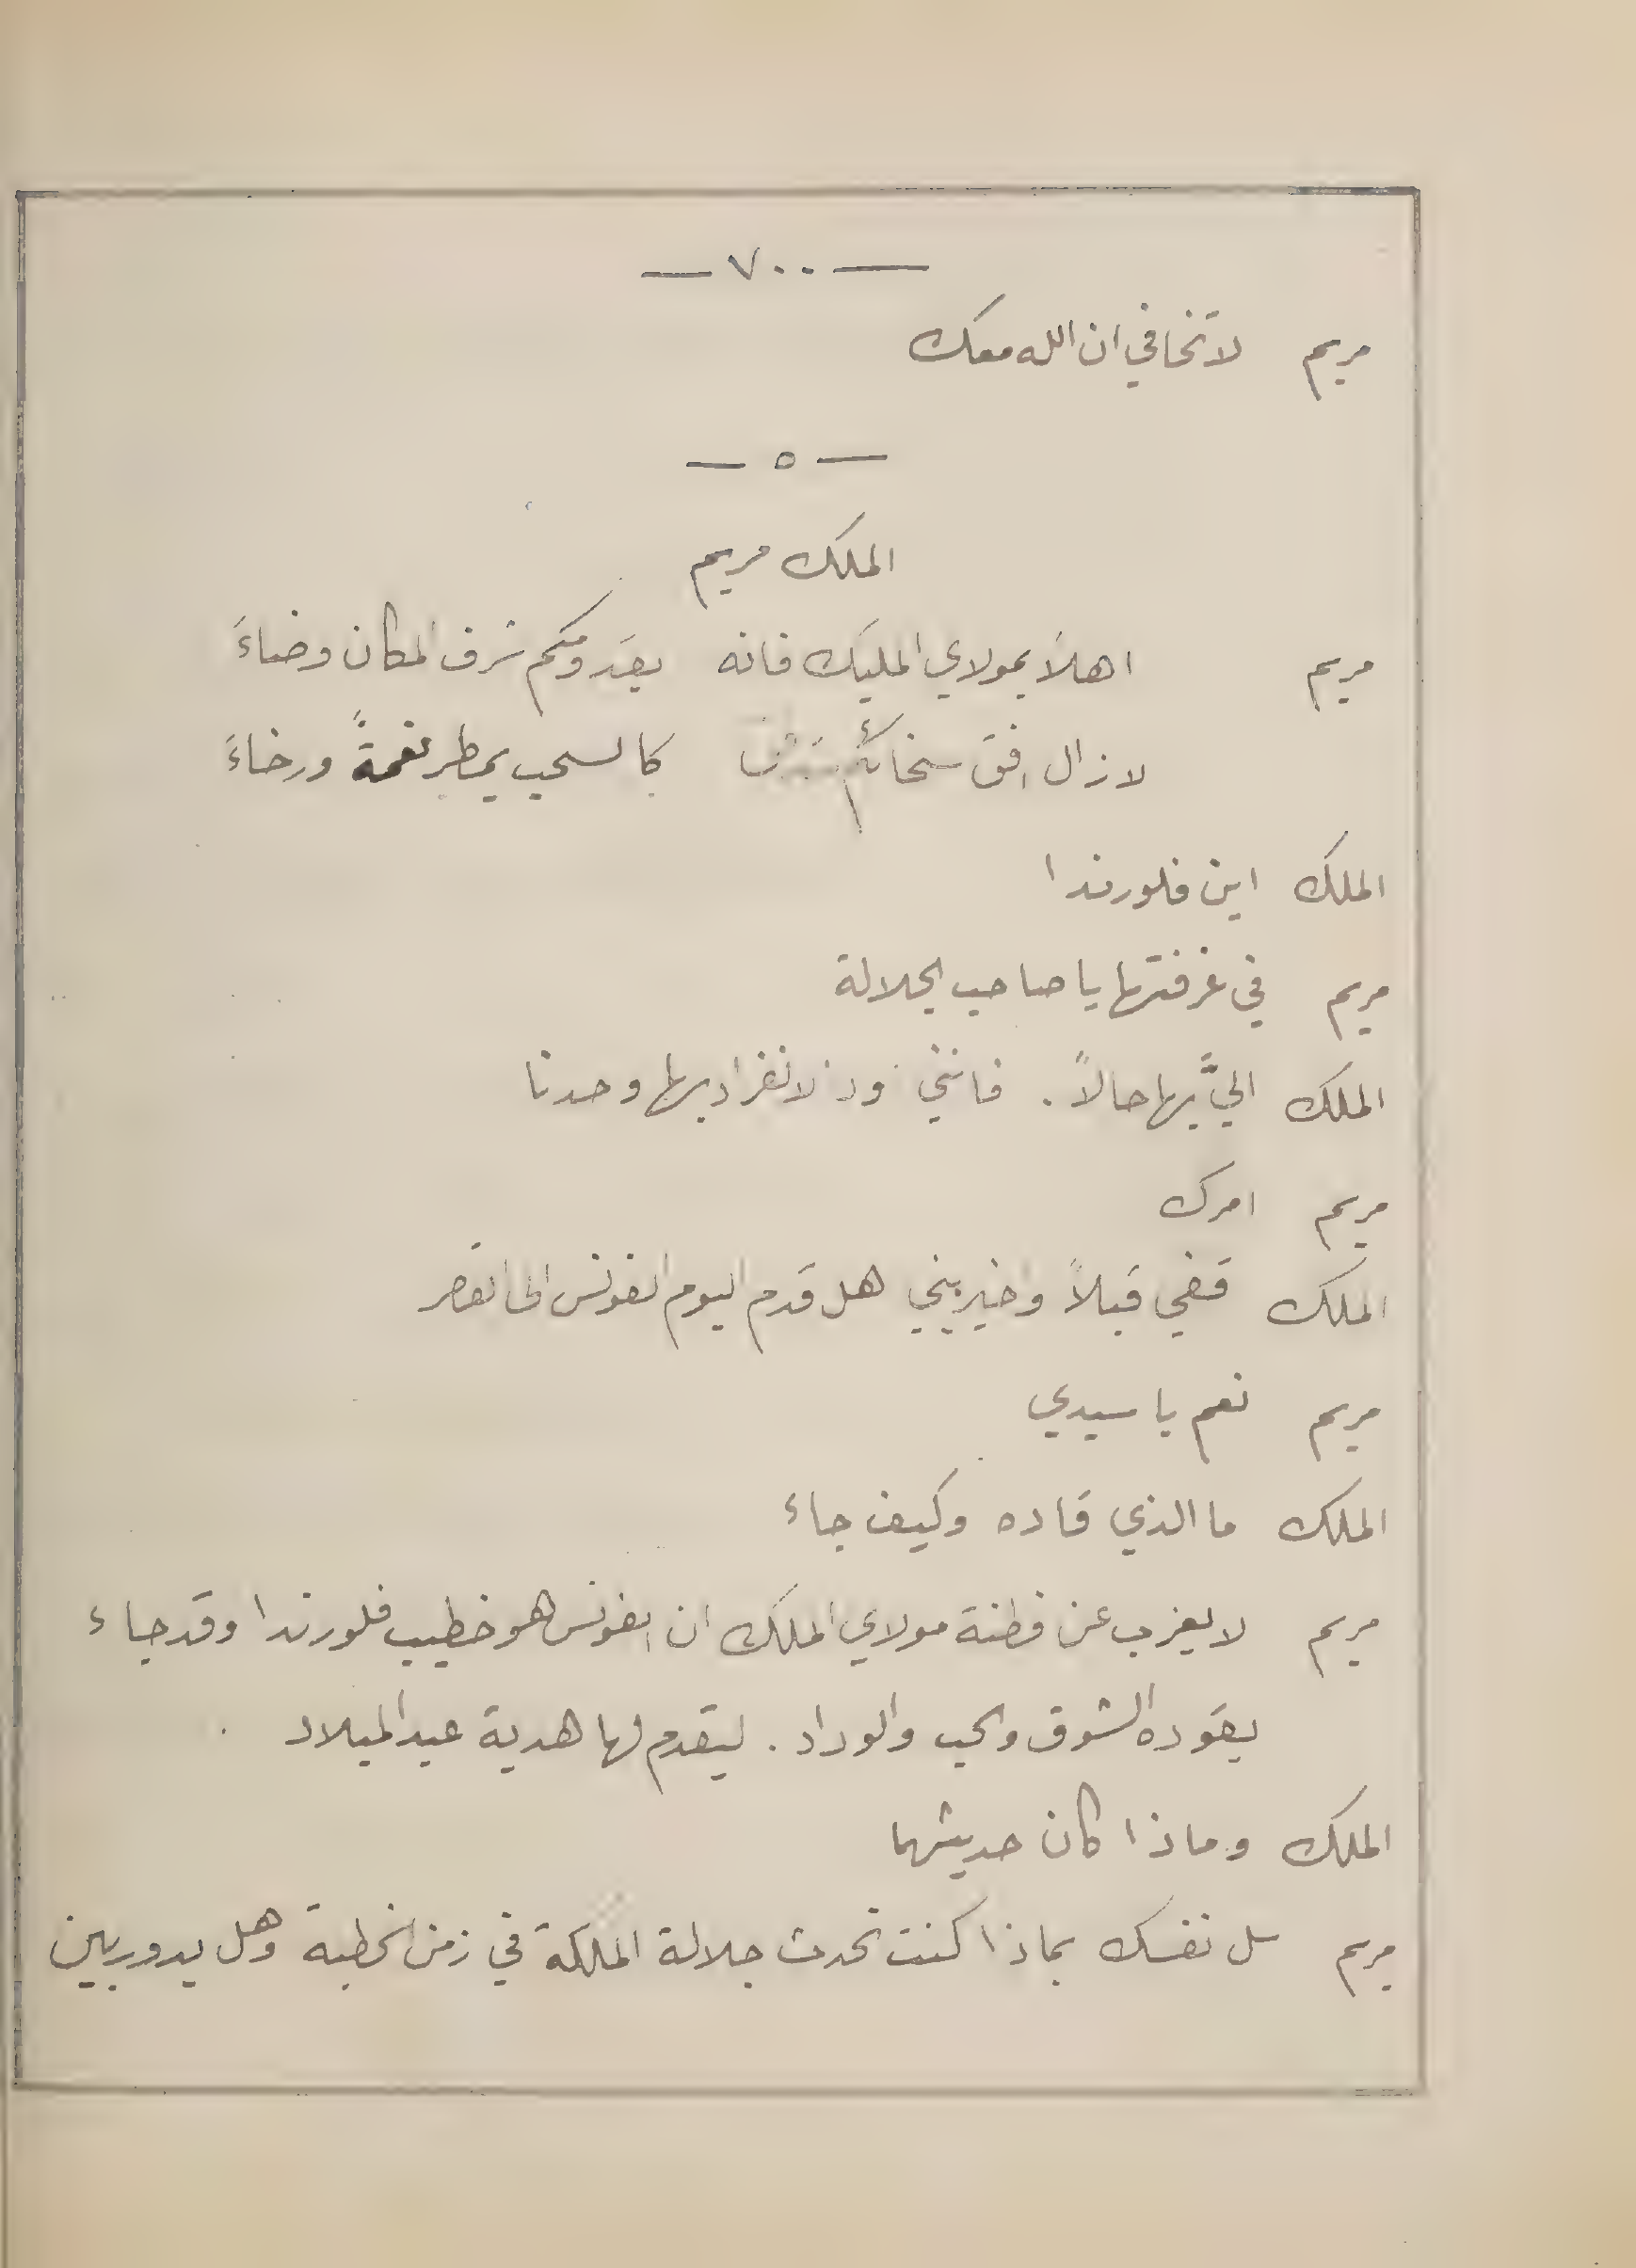 — ٧٠٠ —
مريم لا تخافي ان الله معك
— ٥ —
الملك مريم
مريم اهلاً بمولاي المليك فانه بقدومكم شرف المكان وضاءَ
لا زال افق سخائكم كالسحب يمطر نعمةً ورخاءَ
الملك اين فلورندا
مريم في غرفتها يا صاحب الجلالة
الملك اليَّ بها حالاً . فانني اود الانفراد بها وحدنا
مريم امرك
الملك قفي قبلاً واخبريني هل قدم اليوم الفونس الى القصر
مريم نعم يا سيدي
الملك ما الذي قاده وكيف جاء
مريم لا يعزب عن فطنة مولاي الملك ان الفونس هو خطيب فلورندا وقد جاء
يقوده الشوق والحب والوداد . ليقدم لها هدية عيد الميلاد .
الملك وماذا كان حديثهما
مريم سل نفسك بماذا كنت تحدث جلالة الملكة في زمن الخطبة وهل يدور بين